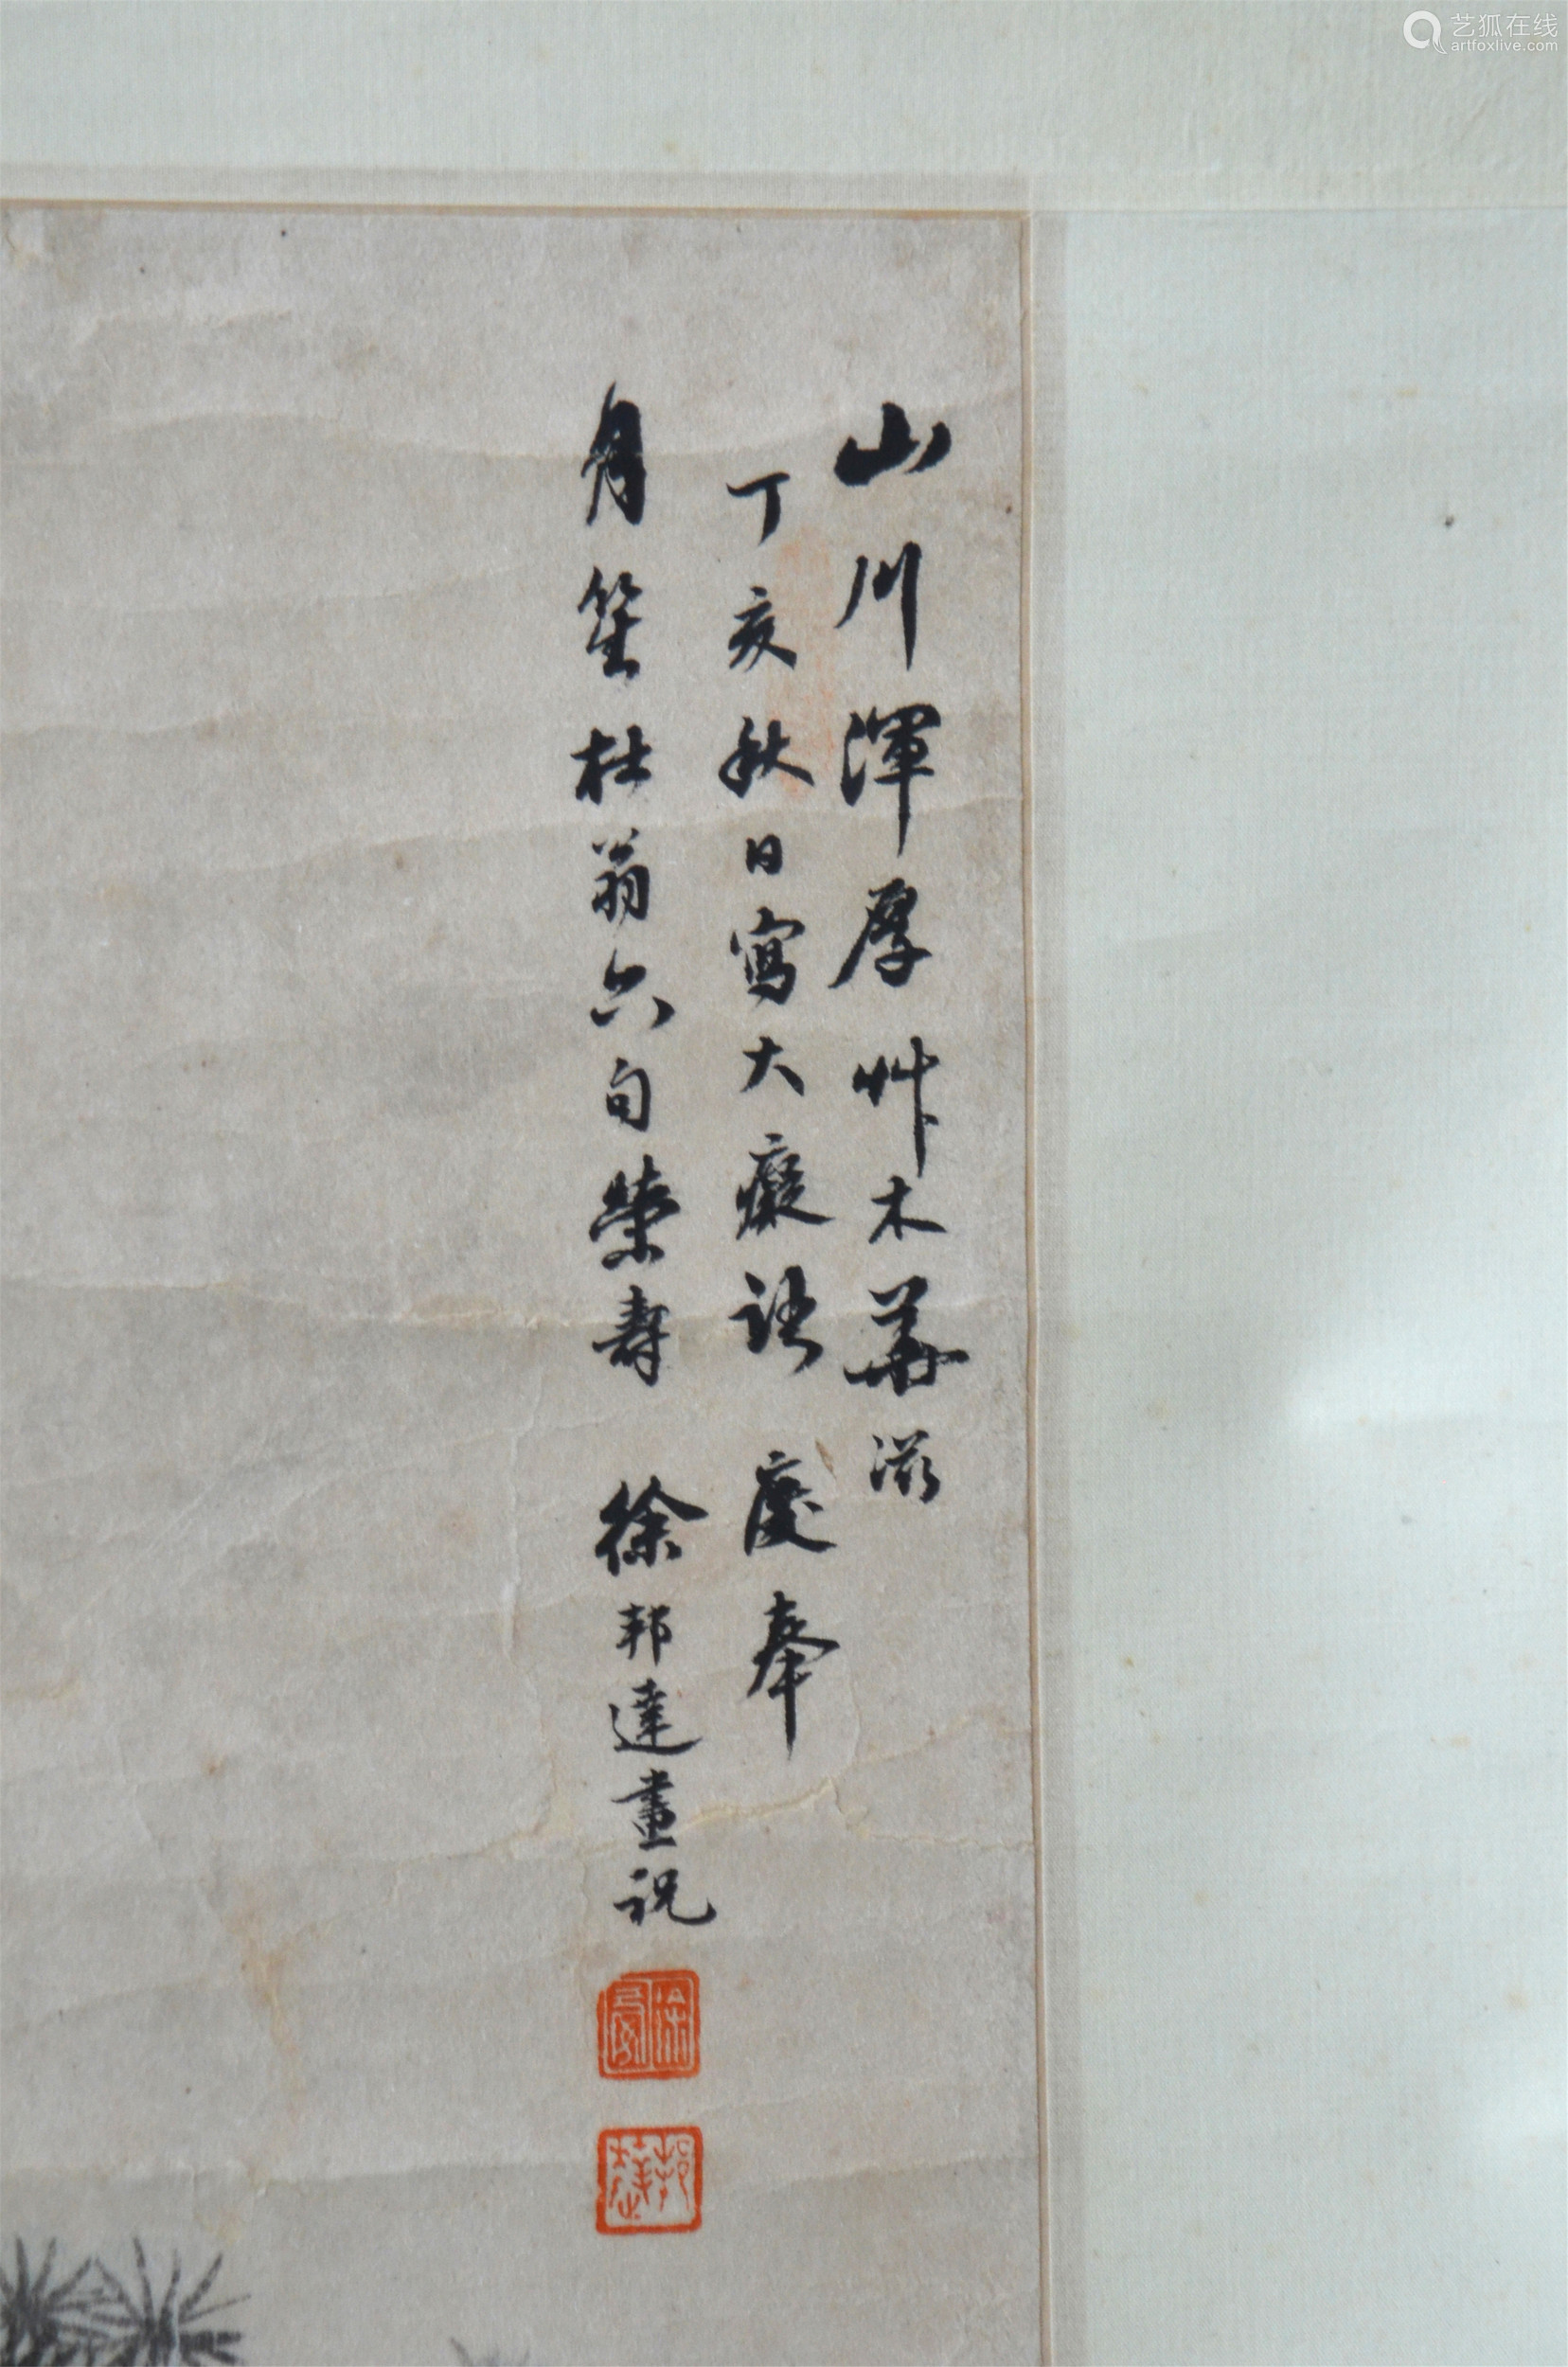 山川渾厚艸木華滋
丁亥秋日寫大癡語 慶奉
月笙杜翁六旬榮壽 徐邦達畫祝
邦達
艺狐在线
artfoxlive.com